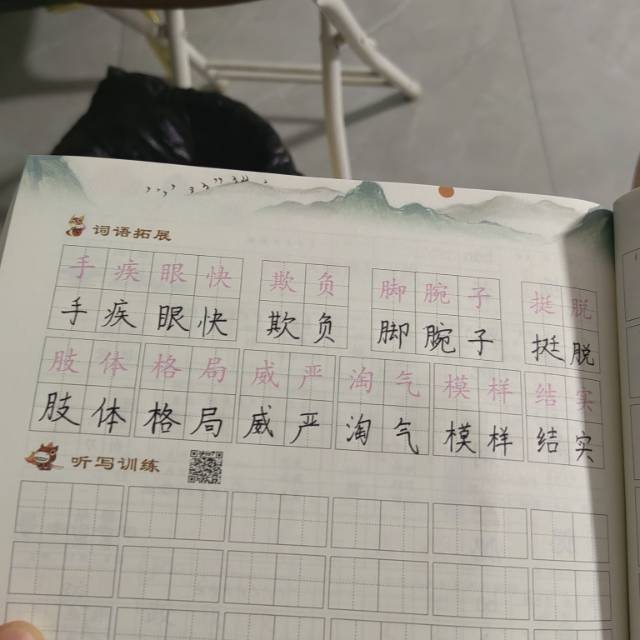 词语拓展
手疾眼快 欺负 脚腕子 挺脱
手疾眼快 欺负 脚腕子 挺脱
肢体 格局 威严 淘气 模样 结实
肢体 格局 威严 淘气 模样 结实
听写训练